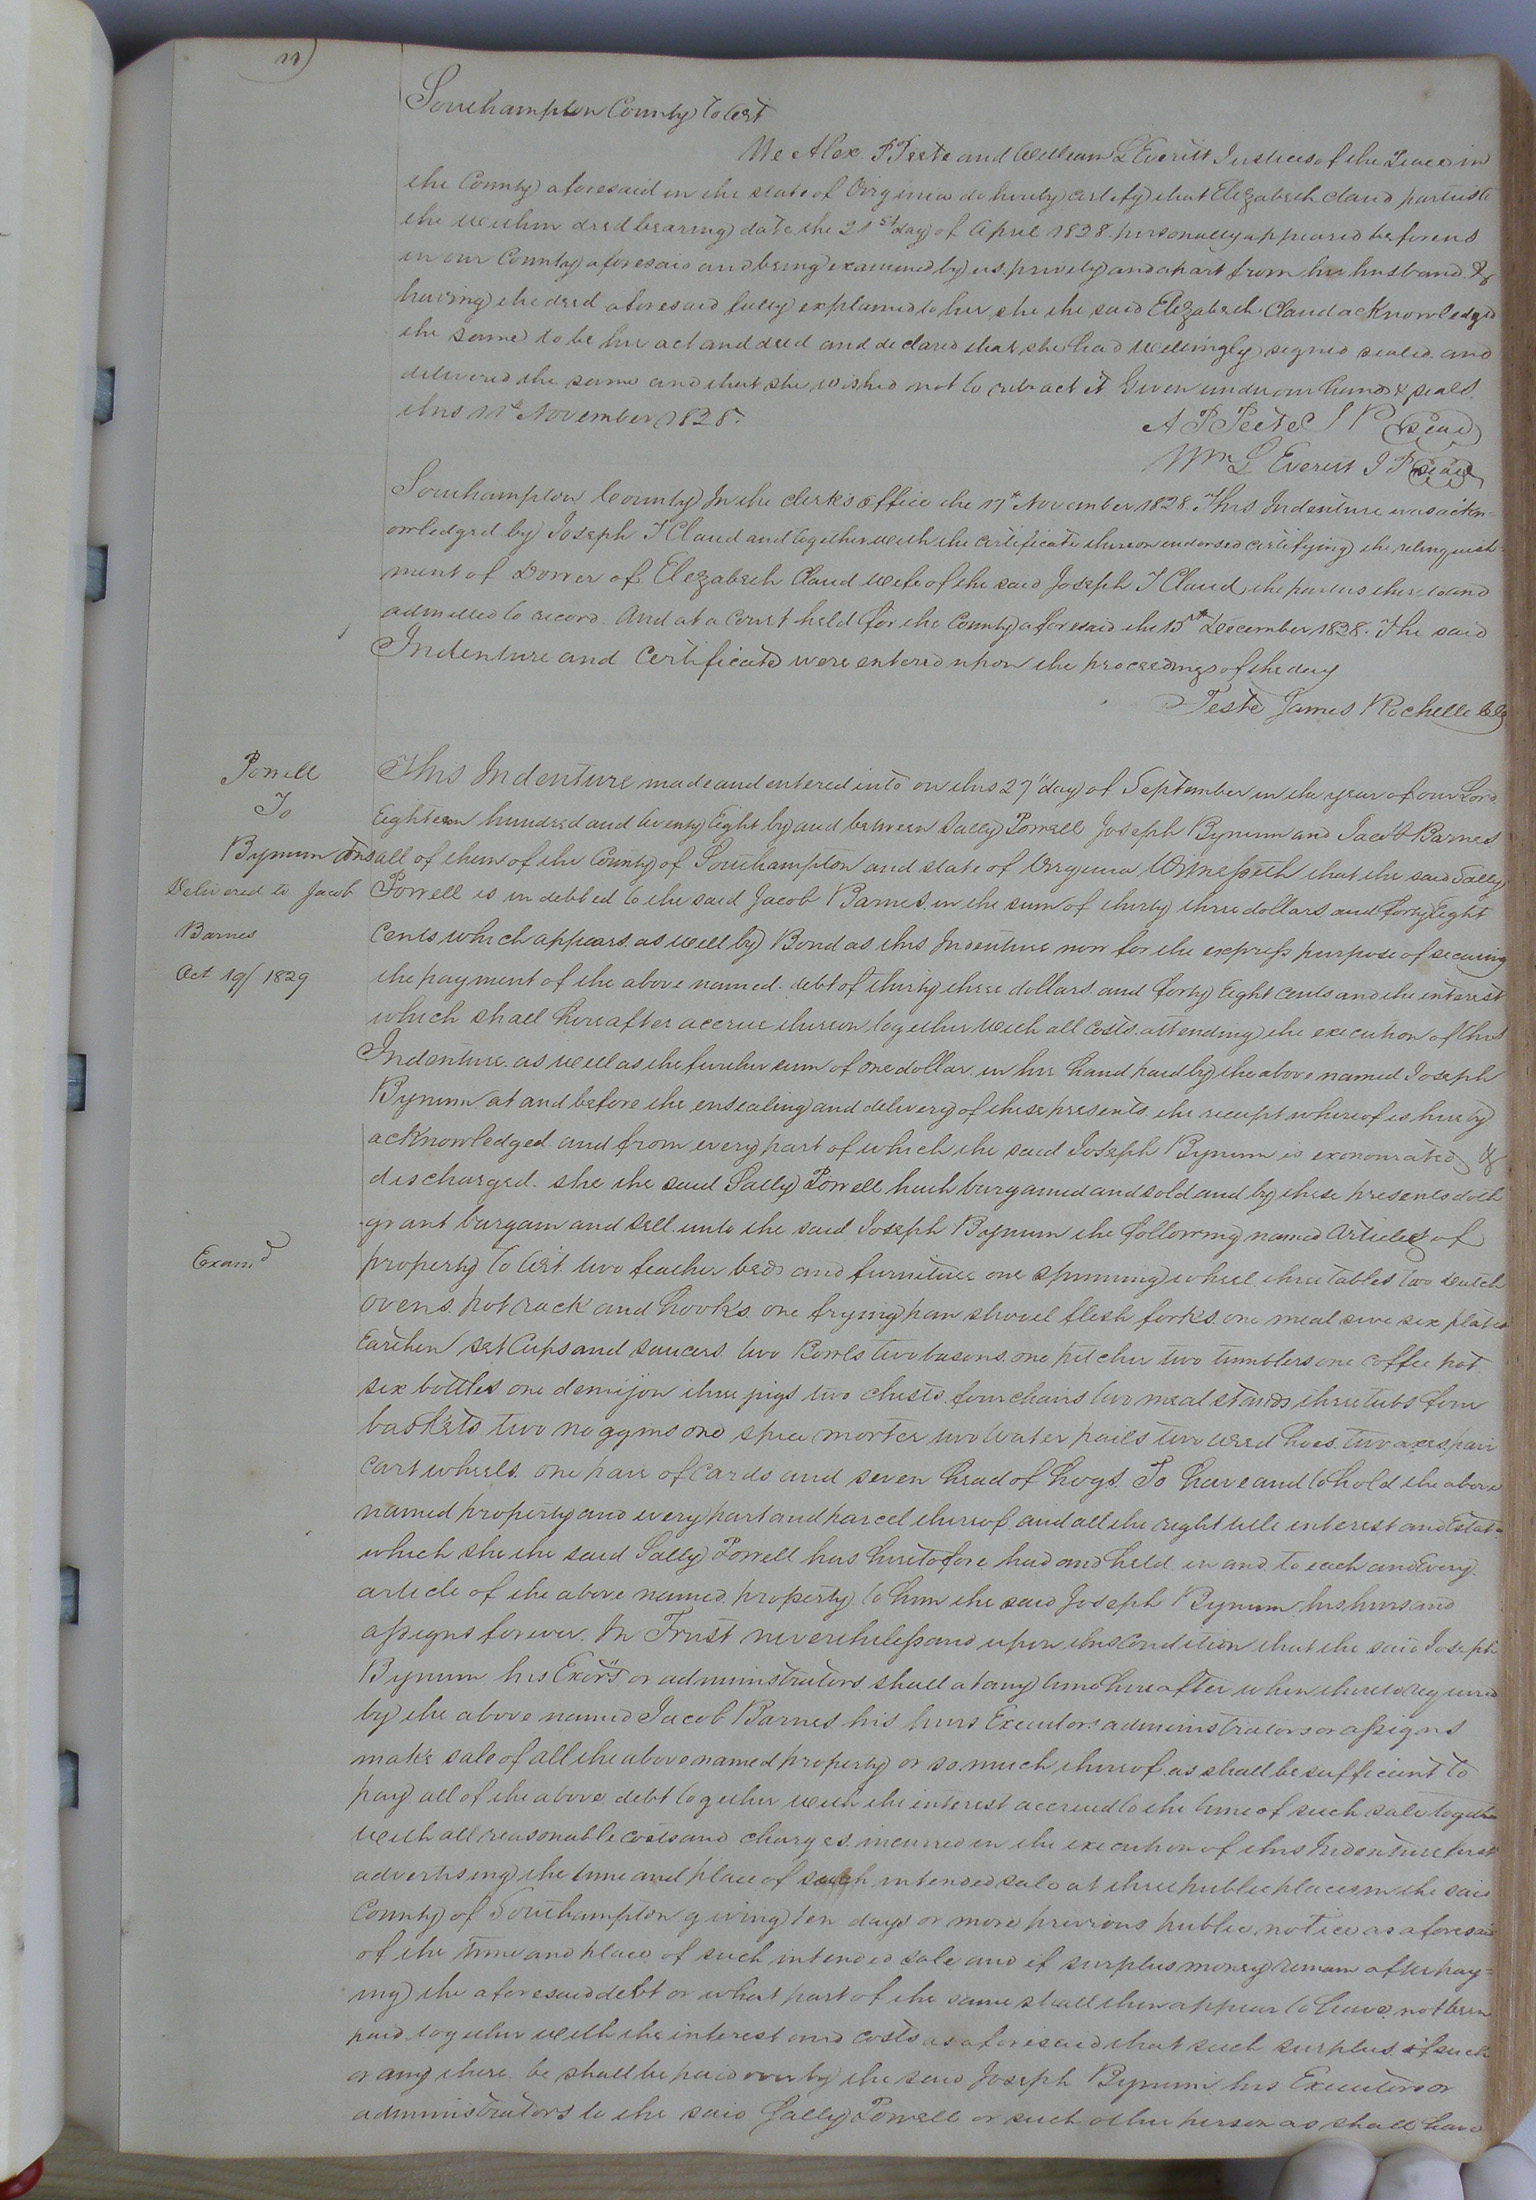 Southampton County to wit
We Alex. P Peete and William L Everitt Justices of the Peace in
the County aforesaid in the state of Virginia do hereby certify that Elizabeth Claud parties to
the within deed bearing date the 21st day of April 1828. personally appeared before us
in our County aforesaid and being examined by us privily and apart from her husband &
having the deed aforesaid fully explained to her she the said Elizabeth Claud acknowledged
the same to be her act and deed and declared that she had willingly signed sealed and
delivered the same and that she wished not to retract it Given under our hands & seals
this 11th November 1828.
A P Peete J P (seal)
Wm L Everitt J P (seal)
Southampton County In the clerks office the 17th November 1828 This Indenture was ackn-
owledged by Joseph T Claud and together with the certificate thereon endorsed certifying the relinquish-
ment of Dower of Elizabeth Claud wife of the said Joseph T Claud, the parties thereto and
admitted to record. And at a Court held for the County aforesaid the 15th December 1828. The said
Indenture and Certificate were entered upon the proceedings of the day
Teste James Rochelle
Powell
To
Bynum
Delivered to Jacob
Barnes
Oct 19/1829
This Indenture made and entered into on this 27th day of September in the year of our Lord
Eighteen hundred and twenty Eight by and between Sally Powell Joseph Bynum and Jacob Barnes
all of them of the County of Southampton and state of Virginia Witnesseth that the said Sally
Powell is in debted to the said Jacob Barnes in the sum of thirty three dollars and forty Eight
Cents which appears as well by Bond as this Indenture now for the express purpose of securing
the payment of the above named debt of thirty three dollars and forty Eight cents and the interest
which shall hereafter accrue thereon together with all costs attending the execution of this
Indenture as well as the further sum of one dollar in her hand paid by the above named Joseph
Bynum at and before the ensealing and delivery of these presents the receipt whereof is hereby
acknowledged and from every part of which the said Joseph Bynum is exonourated &
discharged. she the said Sally Powell hath bargained and sold and by these presents doth
grant bargain and sell unto the said Joseph Bynum the following named Articles of
Examd
property To wit two feather beds and furniture one spinning wheel three tables two Dutch
ovens pot rack and hooks one frying pan shovel flesh forks one meal sive six plates
Earthen set Cups and saucers two Bowls two basons one pitcher two tumblers one coffee pot
six bottles one demijon three pigs two chests four chairs two meal stands three tubs four
baskets two noggins one spice morter two water pails two weed hoes two axes pair
Cart wheels one pair of Cards and seven head of hogs. To have and to hold the above
named property and every part and parcel thereof and all the right title interest and Estate
which she the said Sally Powell has heretofore had and held in and to each and Every
article of the above named property to him the said Joseph Bynum his heirs and
assigns forever. In Trust nevertheless and upon this Condition that the said Joseph
Bynum his Exors or administrators shall at any time hereafter when thereto required
by the above named Jacob Barnes his heirs Executors administrators or assigns
make sale of all the above named property or so much thereof as shall be sufficient to
pay all of the above debt together with the interest accrued to the time of such sale together
with all reasonable costs and charges incurred in the execution of this Indenture first
advertising the time and place of such intended sale at three public places in the said
County of Southampton giving ten days or more previous public notice as aforesaid
of the time and place of such intended sale and if surplus money remain after pay-
ing the aforesaid debt or what part of the same shall then appear to have not been
paid together with the interest and costs as aforesaid that such surplus if such
or any there be shall be paid over by the said Joseph Bynum his Executors or
administrators to the said Sally Powell or such other person as shall have